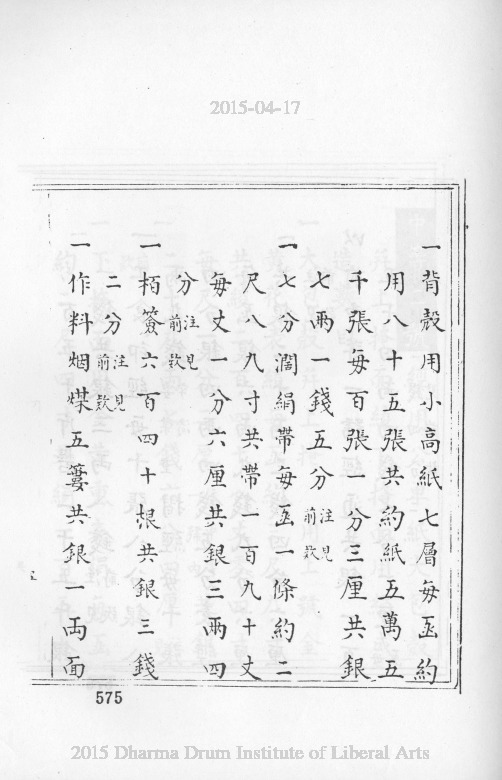 2015-04-17
一背殼用小高紙七層每函約
用八十五張共約紙五萬五
千張每百張一分三厘共銀
七兩一錢五分注見前款
一七分濶絹帶每函一條約二
尺八九寸共帶一百九十丈
每丈一分六厘共銀三兩四
分注見前款
一栢簽六百四十根共銀三錢
二分注見前款
一作料烟煤五簍共銀一両面
575
2015 Dharma Drum Institute of Liberal Arts